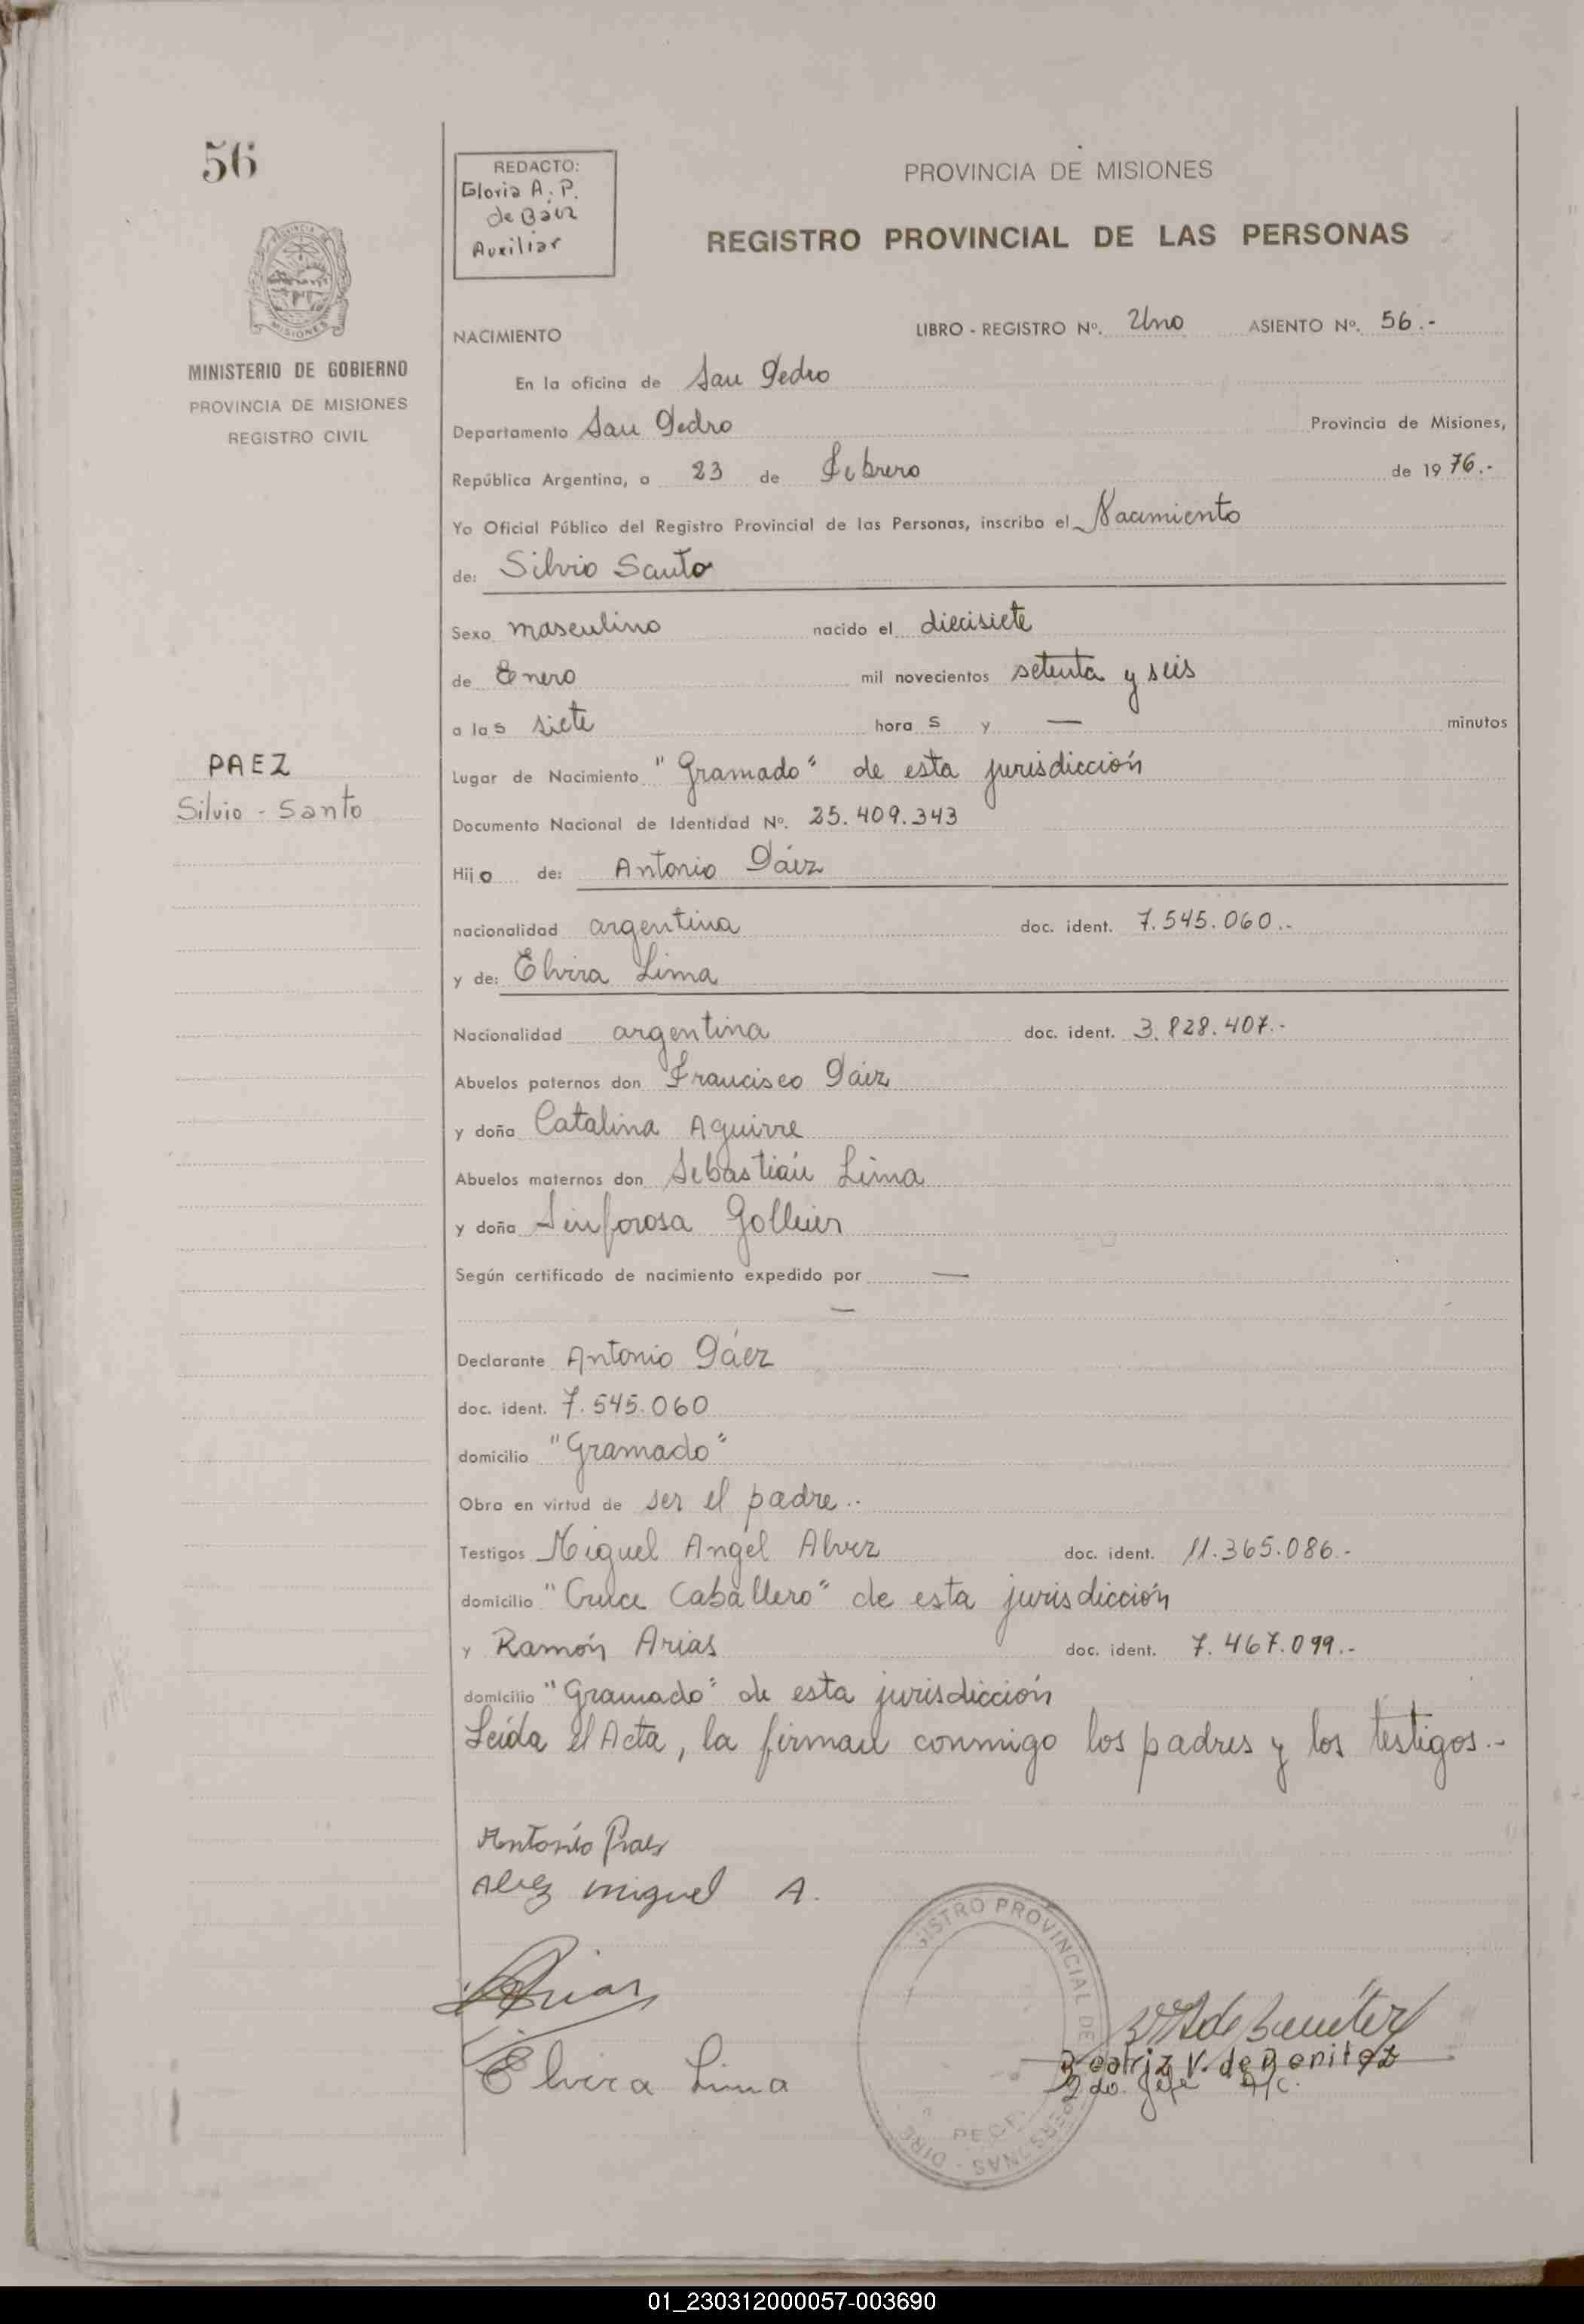 56
REDACTO:
Gloria A. P.
de Báez
Auxiliar
PROVINCIA DE MISIONES
REGISTRO PROVINCIAL DE LAS PERSONAS
MISIONES
MINISTERIO DE GOBIERNO
PROVINCIA DE MISIONES
REGISTRO CIVIL
NACIMIENTO LIBRO - REGISTRO Nº. Uno ASIENTO Nº. 56.-
En la oficina de San Pedro
Departamento San Pedro Provincia de Misiones,
República Argentina, a 23 de Febrero de 1976.-
Yo Oficial Público del Registro Provincial de las Personas, inscribo el Nacimiento
de: Silvio Santo
Sexo masculino nacido el diecisiete
de Enero mil novecientos setenta y seis
a las siete horas y — minutos
PAEZ
Silvio - Santo
Lugar de Nacimiento "Gramado" de esta jurisdicción
Documento Nacional de Identidad Nº. 25.409.343
Hijo de: Antonio Páez
nacionalidad argentina doc. ident. 7.545.060.-
y de: Elvira Lima
Nacionalidad argentina doc. ident. 3.828.407.-
Abuelos paternos don Francisco Páez
y doña Catalina Aguirre
Abuelos maternos don Sebastián Lima
y doña Sinforosa
Según certificado de nacimiento expedido por —
—
Declarante Antonio Páez
doc. ident. 7.545.060
domicilio "Gramado"
Obra en virtud de ser el padre.-
Testigos Miguel Angel Alvez doc. ident. 11.365.086.-
domicilio "Cruce Caballero" de esta jurisdicción
y Ramón Arias doc. ident. 7.467.099.-
domicilio "Gramado" de esta jurisdicción
Leída el Acta, la firman conmigo los padres y los testigos.-
Antonio Paez
Alvez Miguel A.
Arias
Elvira Lima
Beatriz V. de Benitez
2do. Jefe A/C.
REGISTRO PROVINCIAL DE PERSONAS
01_230312000057-003690